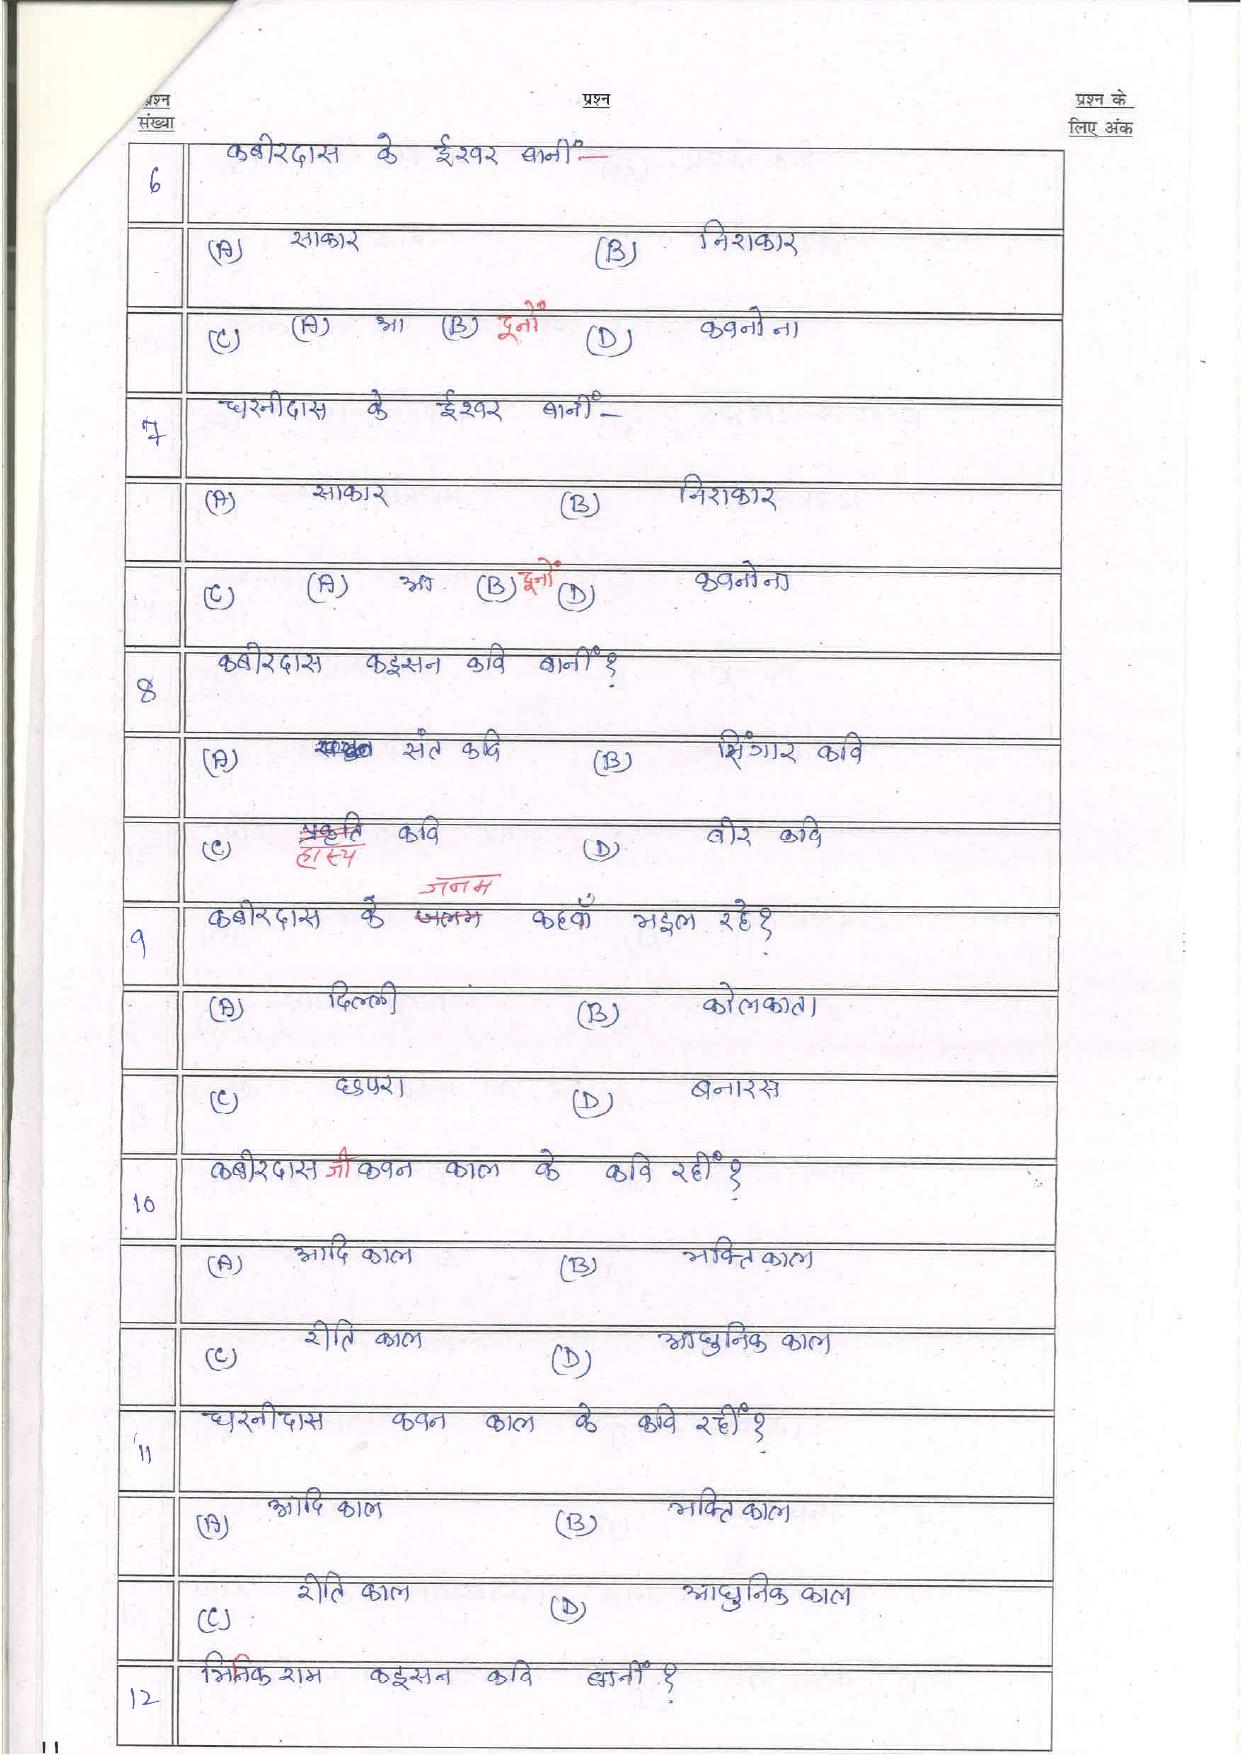 प्रश्न प्रश्न प्रश्न के
संख्या लिए अंक
6 कबीरदास के ईश्वर बानीं—
(A) साकार (B) निराकार
(C) (A) आ (B) दूनों (D) कवनो ना
7 धरनीदास के ईश्वर बानीं—
(A) साकार (B) निराकार
(C) (A) आ (B) दूनों (D) कवनो ना
8 कबीरदास कइसन कवि बानीं?
(A) संत कवि (B) सिंगार कवि
(C) प्रकृति कवि (D) वीर कवि
हास्य
जनम
9 कबीरदास के जलम कहवाँ भइल रहे?
(A) दिल्ली (B) कोलकाता
(C) छपरा (D) बनारस
10 कबीरदास जी कवन काल के कवि रहीं?
(A) आदि काल (B) भक्ति काल
(C) रीति काल (D) आधुनिक काल
11 धरनीदास कवन काल के कवि रहीं?
(A) आदि काल (B) भक्ति काल
(C) रीति काल (D) आधुनिक काल
12 भिनिक राम कइसन कवि बानीं?